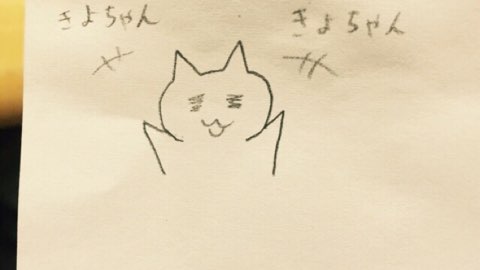 きよちゃん
きよちゃん